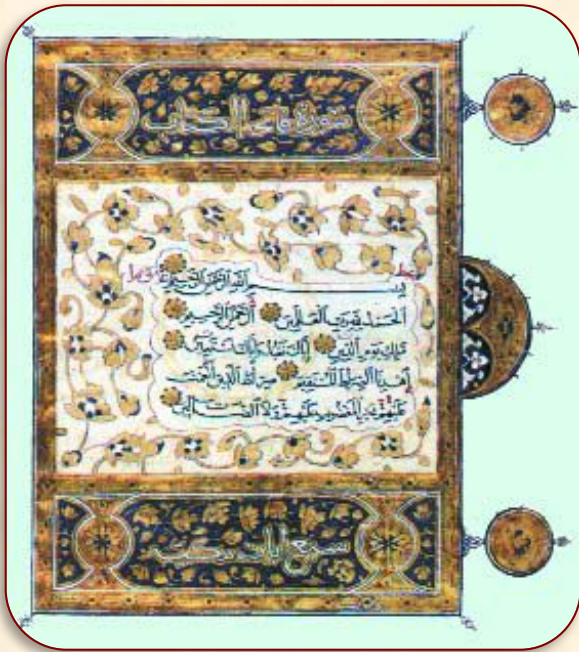 سورة فاتحة الكتاب
بسم الله الرحمن الرحيم
الحمد لله رب العلمين الرحمن الرحيم
ملك يوم الدين اياك نعبد واياك نستعين
اهدنا الصراط المستقيم صراط الذين انعمت
عليهم غير المغضوب عليهم ولا الضالين
سبع ايات